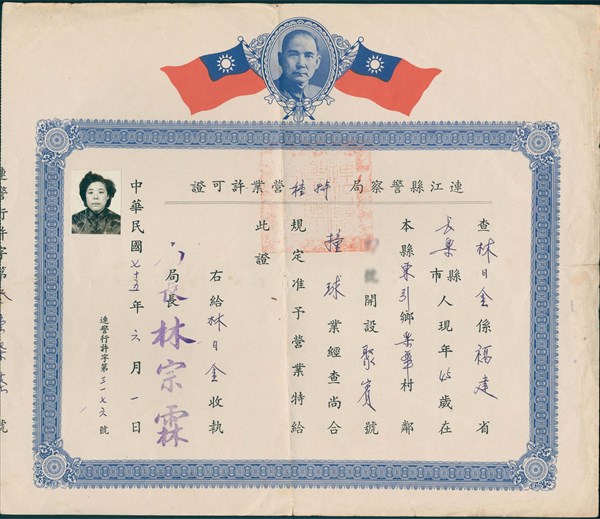 連江縣警察局特種營業許可證
查林日金係福建省
長樂縣市人現年歲在
本縣東引鄉樂華村鄰
號開設聚賓號
撞球業經查尚合
規定准予營業特給
此證
右給林日金收執
局長林宗霖
中華民國七十五年六月一日
連警行許字第三一七六號
連警行許字第號